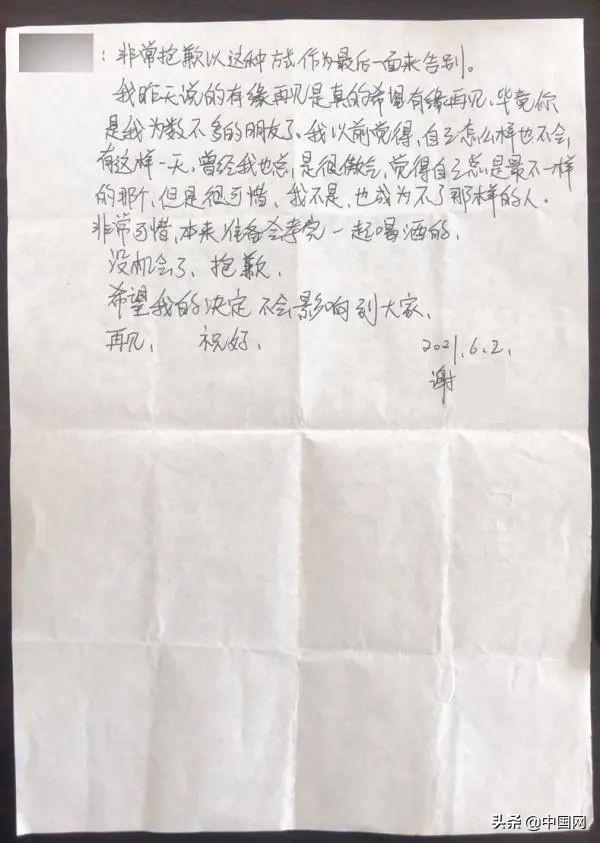 ：非常抱歉以这种方式作为最后一面来告别。
我昨天说的有缘再见是真的希望有缘再见，毕竟你
是我为数不多的朋友了。我以前觉得，自己怎么样也不会，
有这样一天，曾经我也总，是很傲气，觉得自己总是最不一样
的那个，但是很可惜，我不是，也成为不了那样的人。
非常可惜，本来准备会考完一起喝酒的，
没机会了，抱歉，
希望我的决定不会影响到大家，
再见， 祝好，
2021.6.2.
谢
头条 @中国网